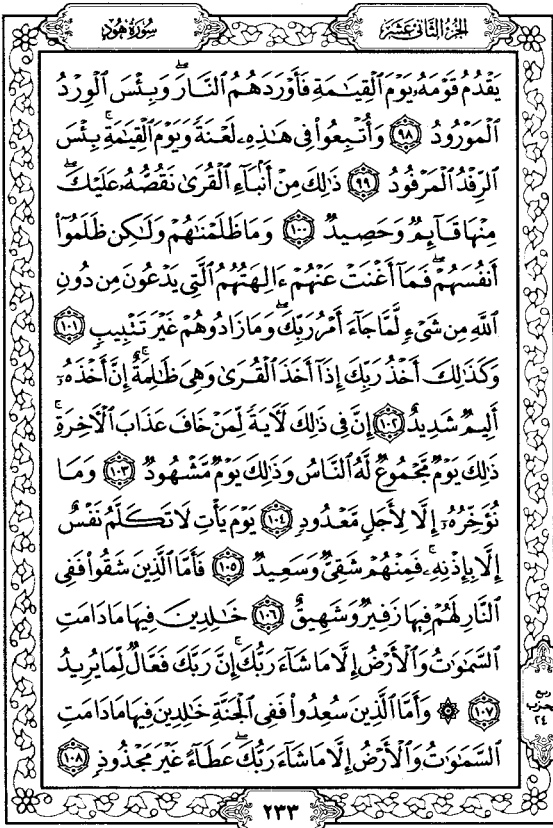 سُورَةُ هُودٍ
الجُزْءُ الثَّانِى عَشَرَ
يَقْدُمُ قَوْمَهُۥ يَوْمَ ٱلْقِيَـٰمَةِ فَأَوْرَدَهُمُ ٱلنَّارَ ۖ وَبِئْسَ ٱلْوِرْدُ
ٱلْمَوْرُودُ ٩٨ وَأُتْبِعُوا۟ فِى هَـٰذِهِۦ لَعْنَةً وَيَوْمَ ٱلْقِيَـٰمَةِ ۚ بِئْسَ
ٱلرِّفْدُ ٱلْمَرْفُودُ ٩٩ ذَٰلِكَ مِنْ أَنۢبَآءِ ٱلْقُرَىٰ نَقُصُّهُۥ عَلَيْكَ ۖ
مِنْهَا قَآئِمٌ وَحَصِيدٌ ١٠٠ وَمَا ظَلَمْنَـٰهُمْ وَلَـٰكِن ظَلَمُوٓا۟
أَنفُسَهُمْ ۖ فَمَآ أَغْنَتْ عَنْهُمْ ءَالِهَتُهُمُ ٱلَّتِى يَدْعُونَ مِن دُونِ
ٱللَّهِ مِن شَىْءٍ لَّمَّا جَآءَ أَمْرُ رَبِّكَ ۖ وَمَا زَادُوهُمْ غَيْرَ تَتْبِيبٍ ١٠١
وَكَذَٰلِكَ أَخْذُ رَبِّكَ إِذَآ أَخَذَ ٱلْقُرَىٰ وَهِىَ ظَـٰلِمَةٌ ۚ إِنَّ أَخْذَهُۥٓ
أَلِيمٌ شَدِيدٌ ١٠٢ إِنَّ فِى ذَٰلِكَ لَـَٔايَةً لِّمَنْ خَافَ عَذَابَ ٱلْـَٔاخِرَةِ ۚ
ذَٰلِكَ يَوْمٌ مَّجْمُوعٌ لَّهُ ٱلنَّاسُ وَذَٰلِكَ يَوْمٌ مَّشْهُودٌ ١٠٣ وَمَا
نُؤَخِّرُهُۥٓ إِلَّا لِأَجَلٍ مَّعْدُودٍ ١٠٤ يَوْمَ يَأْتِ لَا تَكَلَّمُ نَفْسٌ
إِلَّا بِإِذْنِهِۦ ۚ فَمِنْهُمْ شَقِىٌّ وَسَعِيدٌ ١٠٥ فَأَمَّا ٱلَّذِينَ شَقُوا۟ فَفِى
ٱلنَّارِ لَهُمْ فِيهَا زَفِيرٌ وَشَهِيقٌ ١٠٦ خَـٰلِدِينَ فِيهَا مَا دَامَتِ
ٱلسَّمَـٰوَٰتُ وَٱلْأَرْضُ إِلَّا مَا شَآءَ رَبُّكَ ۚ إِنَّ رَبَّكَ فَعَّالٌ لِّمَا يُرِيدُ
١٠٧ ۞ وَأَمَّا ٱلَّذِينَ سُعِدُوا۟ فَفِى ٱلْجَنَّةِ خَـٰلِدِينَ فِيهَا مَا دَامَتِ
ٱلسَّمَـٰوَٰتُ وَٱلْأَرْضُ إِلَّا مَا شَآءَ رَبُّكَ ۖ عَطَآءً غَيْرَ مَجْذُوذٍ ١٠٨
ربع
الحزب
٢٤
٢٣٣